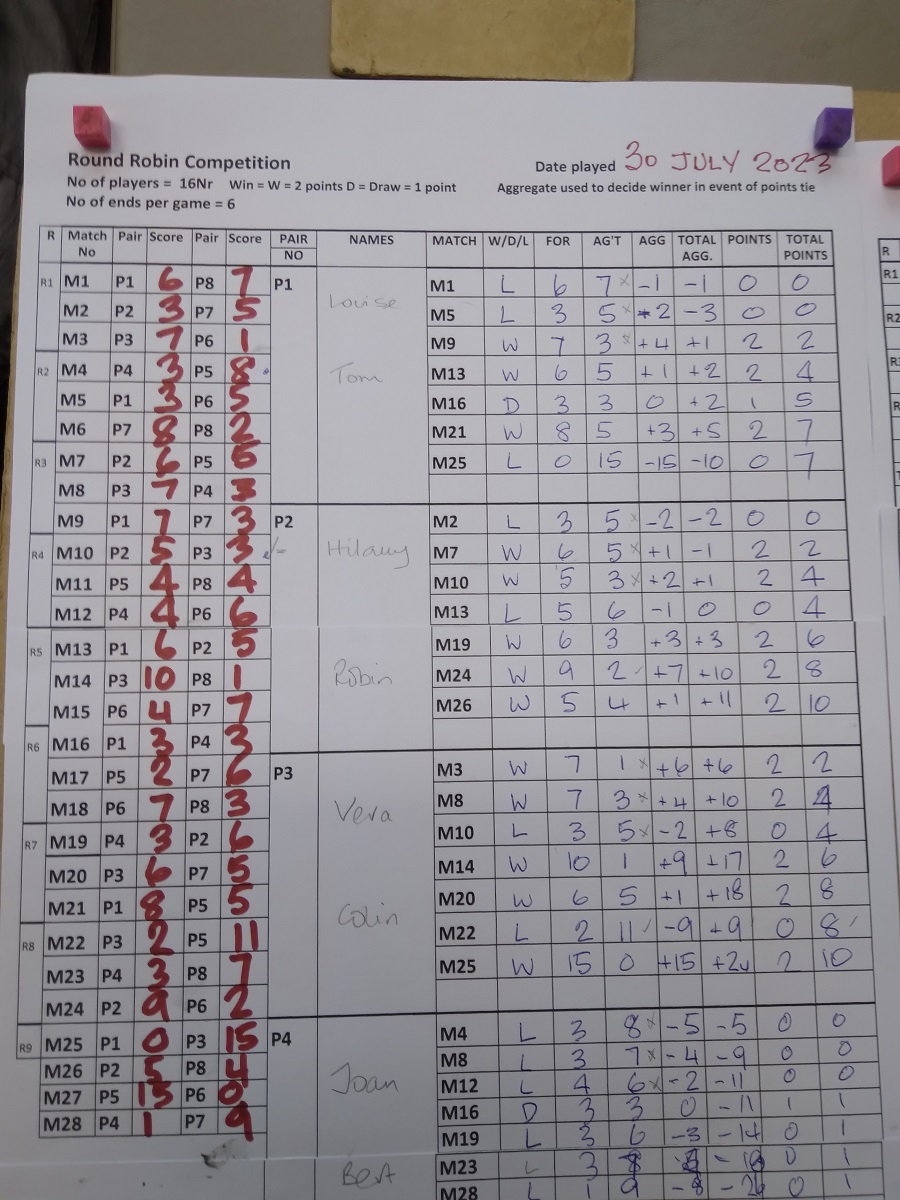 Round Robin Competition
Date played 30 JULY 2023
No of players = 16Nr Win = W = 2 points D = Draw = 1 point
Aggregate used to decide winner in event of points tie
No of ends per game = 6
R Match No Pair Score Pair Score
R1 M1 P1 6 P8 7
M2 P2 3 P7 5
M3 P3 7 P6 1
R2 M4 P4 3 P5 8
M5 P1 3 P6 5
M6 P7 8 P8 2
R3 M7 P2 6 P5
M8 P3 7 P4 3
M9 P1 7 P7 3
R4 M10 P2 5 P3 3
M11 P5 4 P8 4
M12 P4 4 P6 6
R5 M13 P1 6 P2 5
M14 P3 10 P8 1
M15 P6 4 P7 7
R6 M16 P1 3 P4 3
M17 P5 2 P7 6
M18 P6 7 P8 3
R7 M19 P4 3 P2 6
M20 P3 6 P7 5
M21 P1 8 P5 5
R8 M22 P3 2 P5 11
M23 P4 3 P8 7
M24 P2 9 P6 2
R9 M25 P1 0 P3 15
M26 P2 5 P8 4
M27 P5 13 P6 0
M28 P4 1 P7 9
PAIR NO NAMES MATCH W/D/L FOR AG'T AGG TOTAL AGG. POINTS TOTAL POINTS
P1
Louise
Tom
M1 L 6 7 -1 -1 0 0
M5 L 3 5 -2 -3 0 0
M9 W 7 3 +4 +1 2 2
M13 W 6 5 +1 +2 2 4
M16 D 3 3 0 +2 1 5
M21 W 8 5 +3 +5 2 7
M25 L 0 15 -15 -10 0 7
P2
Hilary
Robin
M2 L 3 5 -2 -2 0 0
M7 W 6 5 +1 -1 2 2
M10 W 5 3 +2 +1 2 4
M13 L 5 6 -1 0 0 4
M19 W 6 3 +3 +3 2 6
M24 W 9 2 +7 +10 2 8
M26 W 5 4 +1 +11 2 10
P3
Vera
Colin
M3 W 7 1 +6 +6 2 2
M8 W 7 3 +4 +10 2 4
M10 L 3 5 -2 +8 0 4
M14 W 10 1 +9 +17 2 6
M20 W 6 5 +1 +18 2 8
M22 L 2 11 -9 +9 0 8
M25 W 15 0 +15 +24 2 10
P4
Joan
Bert
M4 L 3 8 -5 -5 0 0
M8 L 3 7 -4 -9 0 0
M12 L 4 6 -2 -11 0 0
M16 D 3 3 0 -11 1 1
M19 L 3 6 -3 -14 0 1
M23 L 3 0 1
M28 L 1 9 -8 0 1
R
R1
R2